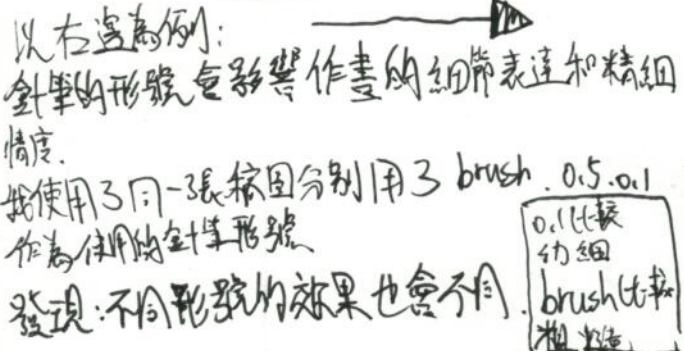 以右邊為例:
針筆的形號會影響作畫的細節表達和精細
情度.
我使用了同一張稿圖分別用了 brush . 0.5 . 0.1
作為使用的針筆形號
發現:不同形號的效果也會不同.
0.1比較
幼細
brush比較
粗糙